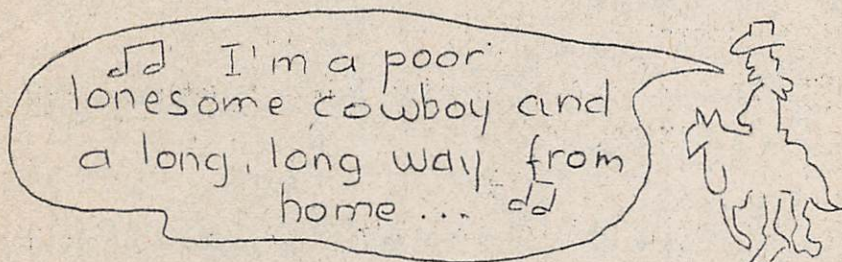 ♫ I'm a poor
lonesome cowboy and
a long, long way from
home ... ♫